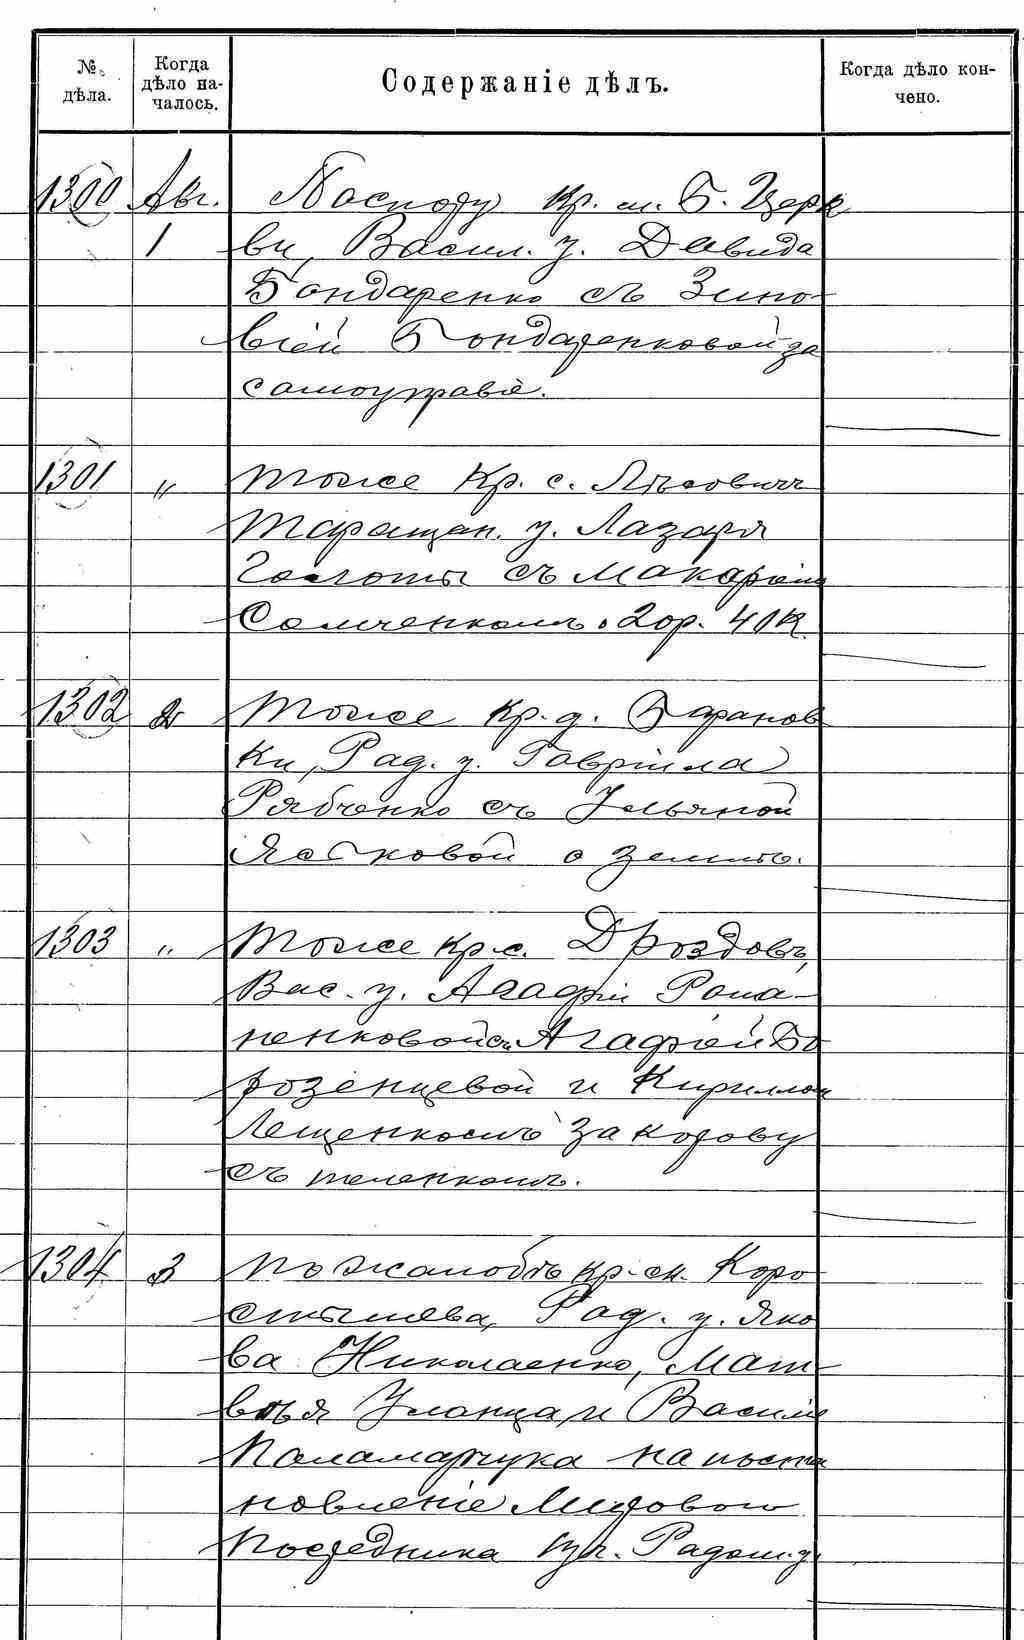 № дѣла.
Когда дѣло началось.
Содержаніе дѣлъ.
Когда дѣло кончено.
1300 Авг. По спору кр. м. Б. Церк
1 ви, Васил. у. Давида
Бондаренко съ Зино-
віей Бондаренковой за
самоуправіе.
1301 " Тоже кр. с. Лѣсович
Таращан. у. Лазаря
Голоты съ Макаріемъ
Самченкомъ о 20р. 40к.
1302 2 Тоже кр. д. Баранов
ки, Рад. у. Гавріила
Рябченко съ Ульяной
о землѣ.
1303 " Тоже кр. с. Дроздовъ,
Вас. у. Агафіи Рома-
ненковой съ Агафіей Бо
розенцевой и Кирилломъ
Лещенкомъ за корову
съ теленкомъ.
1304 3 По жалобѣ кр. м. Коро
стышева, Рад. у. Яко
ва Николаенко, Мат-
вѣя Уланца, и Василія
Паламарчука на поста
новленіе Мирового
Посредника 1 уч. Радом. у.